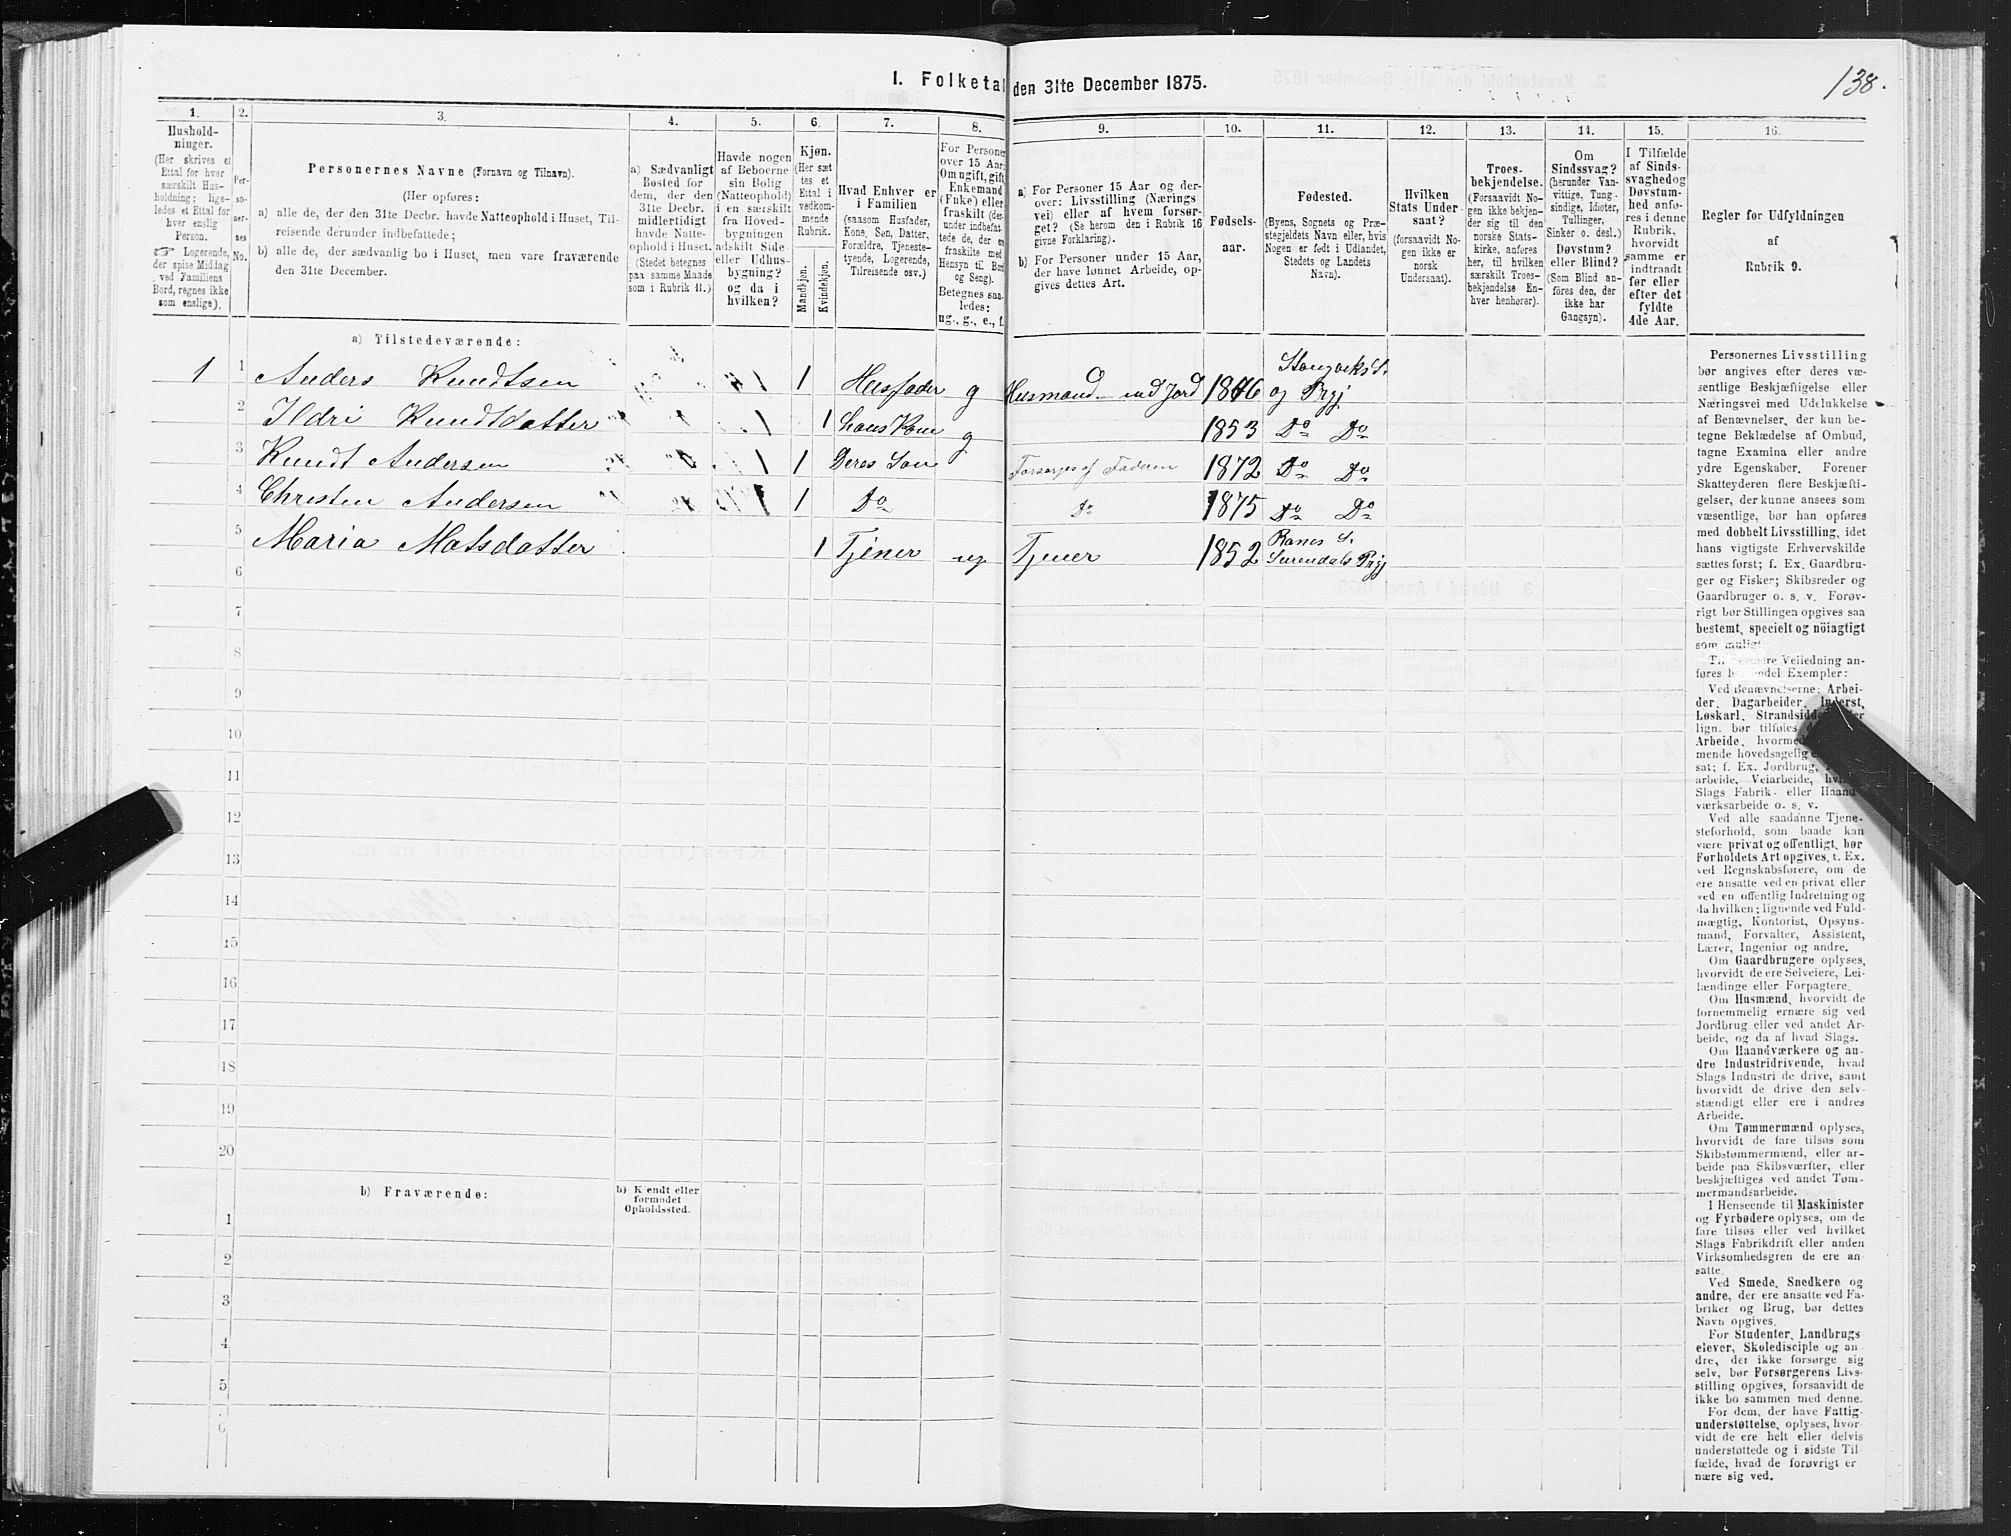 138.
I. Folketal den 31te December 1875.
1.
Hushold-
ninger.
(Her skrives et
Ettal for hver
særskilt Hus-
holdning; lige-
ledes et Ettal for
hver enslig
Person.
Logerende,
der spise Middag
ved Familiens
Bord, regnes ikke
som enslige).
2.
Per-
so-
ner-
nes
No.
3.
Personernes Navne (Fornavn og Tilnavn).
(Her opføres:
a) alle de, der den 31te Decbr. havde Natteophold i Huset, Til-
reisende derunder indbefattede;
b) alle de, der sædvanlig bo i Huset, men vare fraværende
den 31te December.
4.
a) Sædvanligt
Bosted for
dem, der den
31te Decbr.
midlertidigt
havde Natte-
ophold i Huset.
(Stedet betegnes
paa samme Maade
som i Rubrik 11.)
5.
Havde nogen
af Beboerne
sin Bolig
(Natteophold)
i en særskilt
fra Hoved-
bygningen
adskilt Side-
eller Udhus-
bygning?
og da i
hvilken?
6.
Kjøn.
(Her sæt-
tes et
Ettal i
vedkom-
mende
Rubrik.
Mandkjøn.
Kvindekjøn.
7.
Hvad Enhver er
i Familien
(saasom Husfader,
Kone, Søn, Datter,
Forældre, Tjeneste-
tyende, Logerende,
Tilreisende osv.)
8.
For Personer
over 15 Aar:
Om ugift, gift,
Enkemand
(Enke) eller
fraskilt (der-
under indbefat-
tede de, der ere
fraskilte med
Hensyn til Bord
og Seng).
Betegnes saa-
ledes:
ug., g., e., f.
9.
a) For Personer 15 Aar og der-
over: Livsstilling (Nærings-
vei) eller af hvem forsør-
get? (Se herom den i Rubrik 16
givne Forklaring).
b) For Personer under 15 Aar,
der have lønnet Arbeide, op-
gives dettes Art.
10.
Fødsels-
aar.
11.
Fødested.
(Byens, Sognets og Præ-
stegjeldets Navn eller, hvis
Nogen er født i Udlandet,
Stedets og Landets
Navn).
12.
Hvilken
Stats Under-
saat?
(forsaavidt No-
gen ikke er
norsk
Undersaat).
13.
Troes-
bekjendelse.
(Forsaavidt No-
gen ikke bekjen-
der sig til den
norske Stats-
kirke, anføres
her, til hvilken
særskilt Troes-
bekjendelse En-
hver henhører).
14.
Om
Sindssvag?
(herunder Van-
vittige, Tung-
sindige, Idioter,
Tullinger,
Sinker o. desl.)
Døvstum?
eller Blind?
(Som Blind an-
føres den, der
ikke har
Gangsyn).
15.
I Tilfælde
af Sinds-
svaghed og
Døvstum-
hed anfø-
res i denne
Rubrik,
hvorvidt
samme er
indtraadt
før eller
efter det
fyldte
4de Aar.
16.
Regler for Udfyldningen
af
Rubrik 9.
a) Tilstedeværende:
1 1 Anders Knudtsen 1 1 Husfader g Husmand med Jord 1846 og Prgj
2 Ildri Knudtdatter 1 1 hans Kone g 1853 Do Do
3 Knudt Andersen 1 1 Deres Søn Forsørges af Faderen 1872 Do Do
4 Christen Andersen 1 1 Do Do 1875 Do Do
5 Maria Matsdatter 1 Tjener ug Tjener 1852 Ranes S. Surendals Prgj
6
7
8
9
10
11
12
13
14
15
16
17
18
19
20
b) Fraværende:
b) Kjendt eller
formodet
Opholdssted.
1
2
3
4
5
6
Personernes Livsstilling
bør angives efter deres væ-
sentlige Beskjæftigelse eller
Næringsvei med Udelukkelse
af Benævnelser, der kun be-
tegne Beklædelse af Ombud,
tagne Examina eller andre
ydre Egenskaber. Forener
Skatteyderen flere Beskjæfti-
gelser, der kunne ansees som
væsentlige, bør han opføres
med dobbelt Livsstilling, idet
hans vigtigste Erhvervskilde
sættes først; f. Ex. Gaardbru-
ger og Fisker; Skibsreder og
Gaardbruger o. s. v. Forøv-
rigt bør Stillingen opgives saa
bestemt, specielt og nöiagtigt
som muligt.
Til nærmere Veiledning an-
føres Exempler:
Ved Benævnelserne: Arbei-
der, Dagarbeider, Inderst,
Løskarl, Strandsidder eller
lign. bør tilføies
Arbeide, hvormed
mende hovedsagelig
sat; f. Ex. Jordbrug,
arbeide, Veiarbeide, hvilket
Slags Fabrik- eller Haand-
værksarbeide o. s. v.
Ved alle saadanne Tjene-
steforhold, som baade kan
være privat og offentligt, bør
Forholdets Art opgives, t. Ex.
ved Regnskabsførere, om de
ere ansatte ved en privat eller
ved en offentlig Indretning og
da hvilken; lignende ved Fuld-
mægtig, Kontorist, Opsyns-
mand, Forvalter, Assistent,
Lærer, Ingeniør og andre.
Om Gaardbrugere oplyses,
hvorvidt de ere Selveiere, Lei-
lændinge eller Forpagtere.
Om Husmænd, hvorvidt de
fornemmelig ernære sig ved
Jordbrug eller ved andet Ar-
beide, og da af hvad Slags.
Om Haandværkere og an-
dre Industridrivende, hvad
Slags Industri de drive, samt
hvorvidt de drive den selv-
stændigt eller ere i andres
Arbeide.
Om Tømmermænd oplyses,
hvorvidt de fare tilsøs som
Skibstømmermænd, eller ar-
beide paa Skibsværfter, eller
beskjæftiges ved andet Tøm-
mermandsarbeide.
I Henseende til Maskinister
og Fyrbødere oplyses, om de
fare tilsøs eller ved hvilket
Slags Fabrikdrift eller anden
Virksomhedsgren de ere an-
satte.
Ved Smede, Snedkere og
andre, der ere ansatte ved Fa-
briker og Brug, bør dettes
Navn opgives.
For Studenter, Landbrugs-
elever, Skoledisciple og an-
dre, der ikke forsørge sig
selv, bør Forsørgerens Livs-
stilling opgives, forsaavidt de
ikke bo sammen med denne.
For dem, der have Fattig-
understøttelse, oplyses, hvor-
vidt de ere helt eller delvis
understøttede og i sidste Til-
fælde, hvad de forøvrigt er-
nære sig ved.